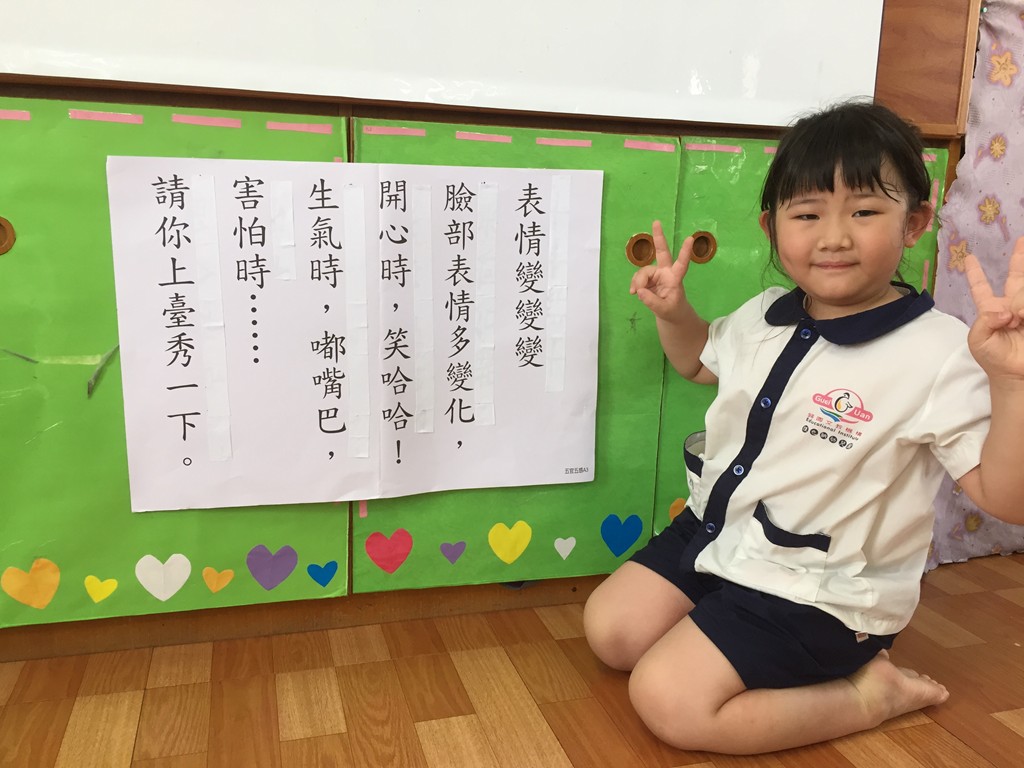 表情變變變
臉部表情多變化，
開心時，笑哈哈！
生氣時，嘟嘴巴，
害怕時……
請你上臺秀一下。
五官五感A3
Guei Uan
Educational Institute